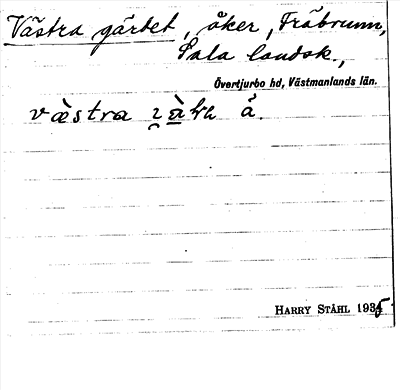 Västra gärdet, åker, Fräbrunn,
Sala landsk.,
Övertjurbo hd, Västmanlands län.
væ̀stra å.
HARRY STÅHL 1935